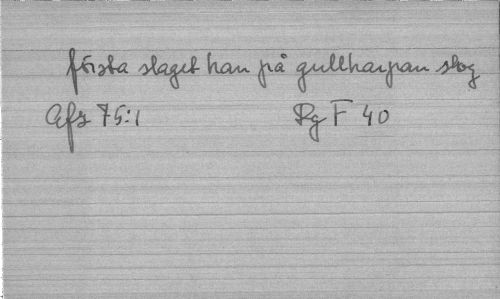 första slaget han på gullharpan slog
Afz 75:1 Rg F 40